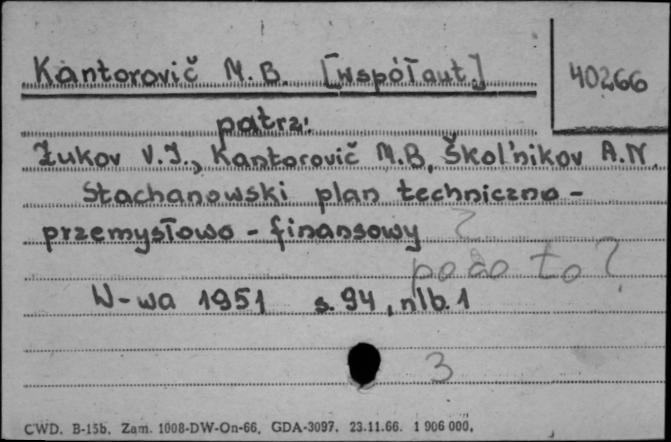 Kantorovič M.B. [współaut.] 40266
patrz:
Žukov V.I., Kantorovič M.B, Škol'nikov A.N.
Stachanowski plan techniczno-
przemysłowo - finansowy ?
poco to?
W-wa 1951 s. 94, nlb. 1
3
CWD. B-15b. Zam. 1008-DW-On-66. GDA-3097. 23.11.66. 1 906 000.